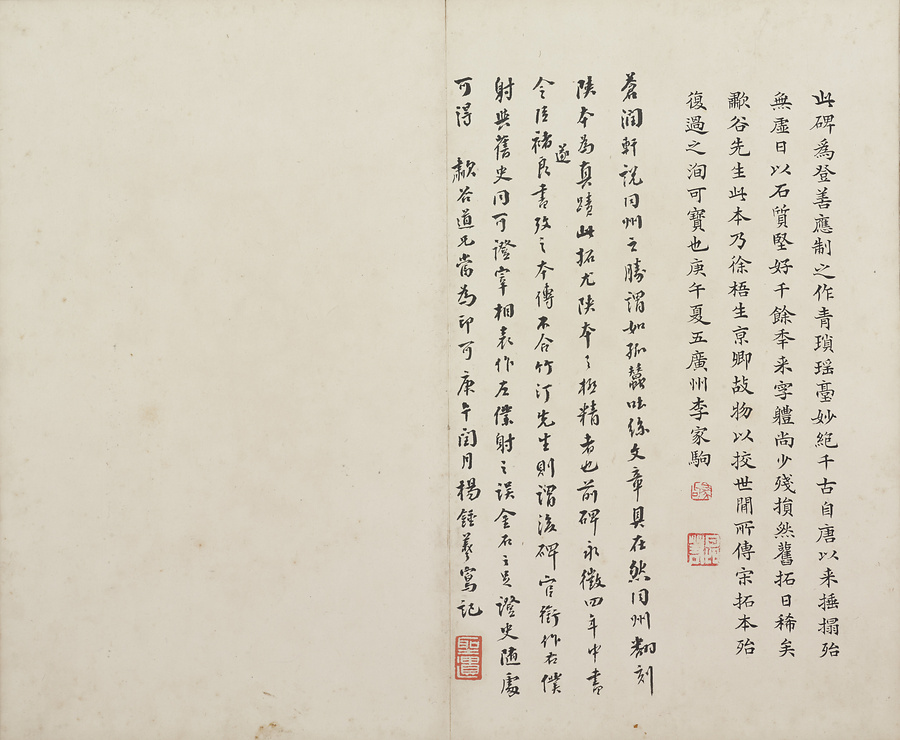 此碑為登善應制之作青瑣瑶臺妙絕千古自唐以来捶搨殆
無虛日以石質堅好千餘秊来字軆尚少殘損然舊拓日稀矣
歗谷先生此本乃徐梧生京卿故物以挍世間所傳宋拓本殆
復過之洵可寶也庚午夏五廣州李家駒
蒼潤軒說同州之勝謂如孤蠶吐絲文章具在然同州翻刻
陕本為真蹟此拓尤陕本之極精者也前碑永徽四年中書
令臣褚遂良書攷之本傳不合竹汀先生則謂後碑官銜作右僕
射與舊史同可證宰相表作左僕射之誤金石之足證史随處
可得 歗谷道兄當為印可庚午閏月楊鍾羲寫記